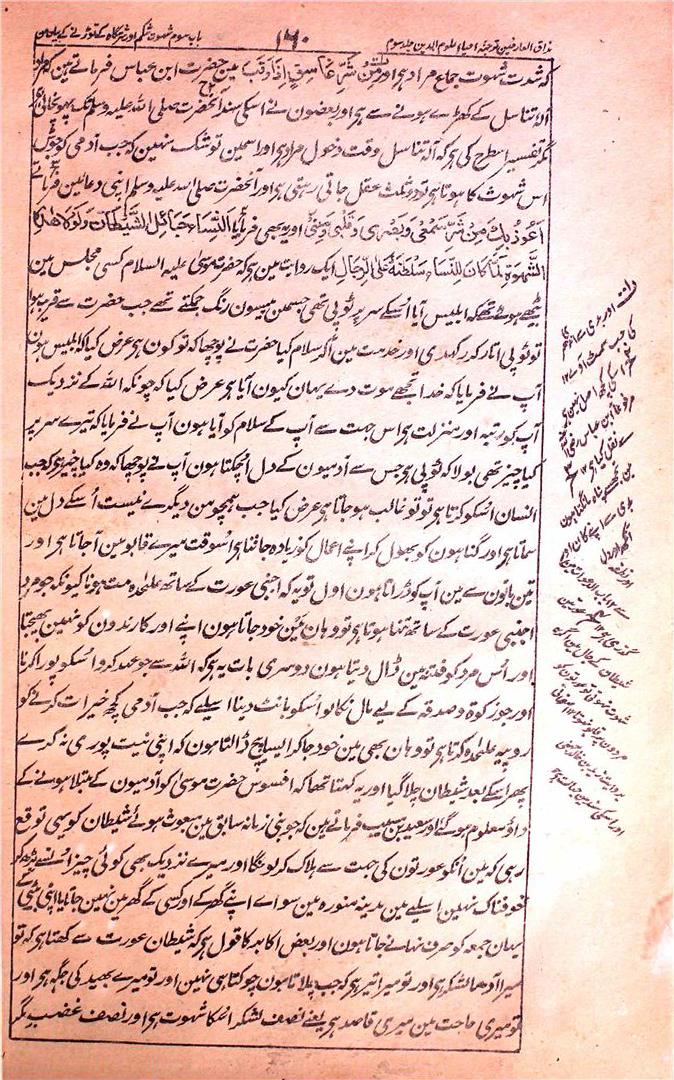 مذاق العارفین ترجمہ احیاء علوم الدین جلد سوم
۱۶۰
باب سوم شہوت شکم اور شرمگاہ کے توڑنے کے بیان مین
کہ شدت شہوت جماع مراد ہی اور وَمِنْ شَرِّ غَاسِقٍ اِذَا وَقَبَ مین حضرت ابن عباس فرماتے ہین کہ مراد
آلہ تناسل کے کھڑے ہونے سے ہی اور بعضون نے اسکی سند آنحضرت صلی اللہ علیہ وسلم تک پہونچائی ہی
مگر تفسیر اسطرح کی ہی کہ آلہ تناسل وقت دخول مراد ہی اور اسمین تو شک نہین کہ جب آدمی کو جوش
اس شہوت کا ہوتا ہی تو دو ثلث عقل جاتی رہتی ہی اور آنحضرت صلی اللہ علیہ وسلم اپنی دعا مین فرماتے
اَعُوْذُ بِكَ مِنْ شَرِّ سَمْعِیْ وَبَصَرِیْ وَقَلْبِیْ وَمَنِیِّیْ اور یہ بھی فرمایا اَلنِّسَاءُ حَبَائِلُ الشَّیْطَانِ وَلَوْلَا هٰذِهِ
الشَّهْوَةُ لَمَا كَانَ لِلنِّسَاءِ سَلْطَنَةٌ عَلَی الرِّجَالِ ایک روایت مین ہی کہ حضرت موسی علیہ السلام کسی مجلس مین
بیٹھے ہوئے تھے کہ ابلیس آیا اُسکے سر پر ٹوپی تھی جسمین بیسون رنگ چمکتے تھے جب حضرت سے قریب ہوا
تو ٹوپی اتار کر رکھدی اور خدمت مین آکر سلام کیا حضرت نے پوچھا کہ تو کون ہی عرض کیا کہ ابلیس ہون
آپ نے فرمایا کہ خدا تجھے موت دے یہان کیون آیا ہی عرض کیا کہ چونکہ اللہ کے نزدیک
آپ کو رتبہ اور منزلت ہی اس جہت سے آپ کے سلام کو آیا ہون آپ نے فرمایا کہ تیرے سر پر
کیا چیز تھی بولا کہ ٹوپی ہی جس سے آدمیون کے دل اُچکتا ہون آپ نے پوچھا کہ وہ کیا چیز ہی کہ جب
انسان اُسکو کرتا ہی تو تو غالب ہو جاتا ہی عرض کیا جب ہمچو من دیگرے نیست اُسکے دل مین
سماتا ہی اور گناہون کو بھول کر اپنے اعمال کو زیادہ جانتا ہی اُسوقت میرے قابو مین آجاتا ہی اور
تین باتون سے مین آپ کو ڈراتا ہون اول تو یہ کہ اجنبی عورت کے ساتھ علحدہ مت ہونا کیونکہ جو مرد
اجنبی عورت کے ساتھ تنہا ہوتا ہی تو وہان مین خود جاتا ہون اپنے اور کارندون کو نہین بھیجتا
اور اُس مرد کو فتنہ مین ڈال دیتا ہون دوسری بات یہ ہی کہ اللہ سے جو عہد کرو اُسکو پورا کرنا
اور جو زکوۃ و صدقہ کے لیے مال نکالو اُسکو بانٹ دینا اسلیے کہ جب آدمی کچھ خیرات کرنے کو
روپیہ علحدہ کرتا ہی تو وہان بھی مین خود جا کر ایسا پیچ ڈالتا ہون کہ اپنی نیت پوری نہ کرے
پھر اسکے بعد شیطان چلا گیا اور یہ کہتا تھا کہ افسوس حضرت موسیٰ کو آدمیون کے مبتلا ہونے کے
داؤ معلوم ہو گئے اور سعید بن مسیب فرماتے ہین کہ جو نبی زمانہ سابق مین مبعوث ہوئے شیطان کو یہی توقع
رہی کہ مین انکو عورتون کی جہت سے ہلاک کرلونگا اور میرے نزدیک بھی کوئی چیز اُنسے بڑھکر
خوفناک نہین اسلیے مین مدینہ منورہ مین سوائے اپنے گھر کے اور کسی کے گھر مین نہین جاتا یا اپنی بیٹی کے
یہان جمعہ کو صرف نہانے جاتا ہون اور بعض اکابر کا قول ہی کہ شیطان عورت سے کہتا ہی کہ تو
میرا آدھا لشکر ہی اور تو میرا تیر ہی کہ جب چلاتا ہون چوکتا ہی نہین اور تو میرے بھید کی جگہ ہی اور
تو میری حاجت مین میری قاصد ہی یعنے نصف لشکر اُسکا شہوت ہی اور نصف غضب مگر